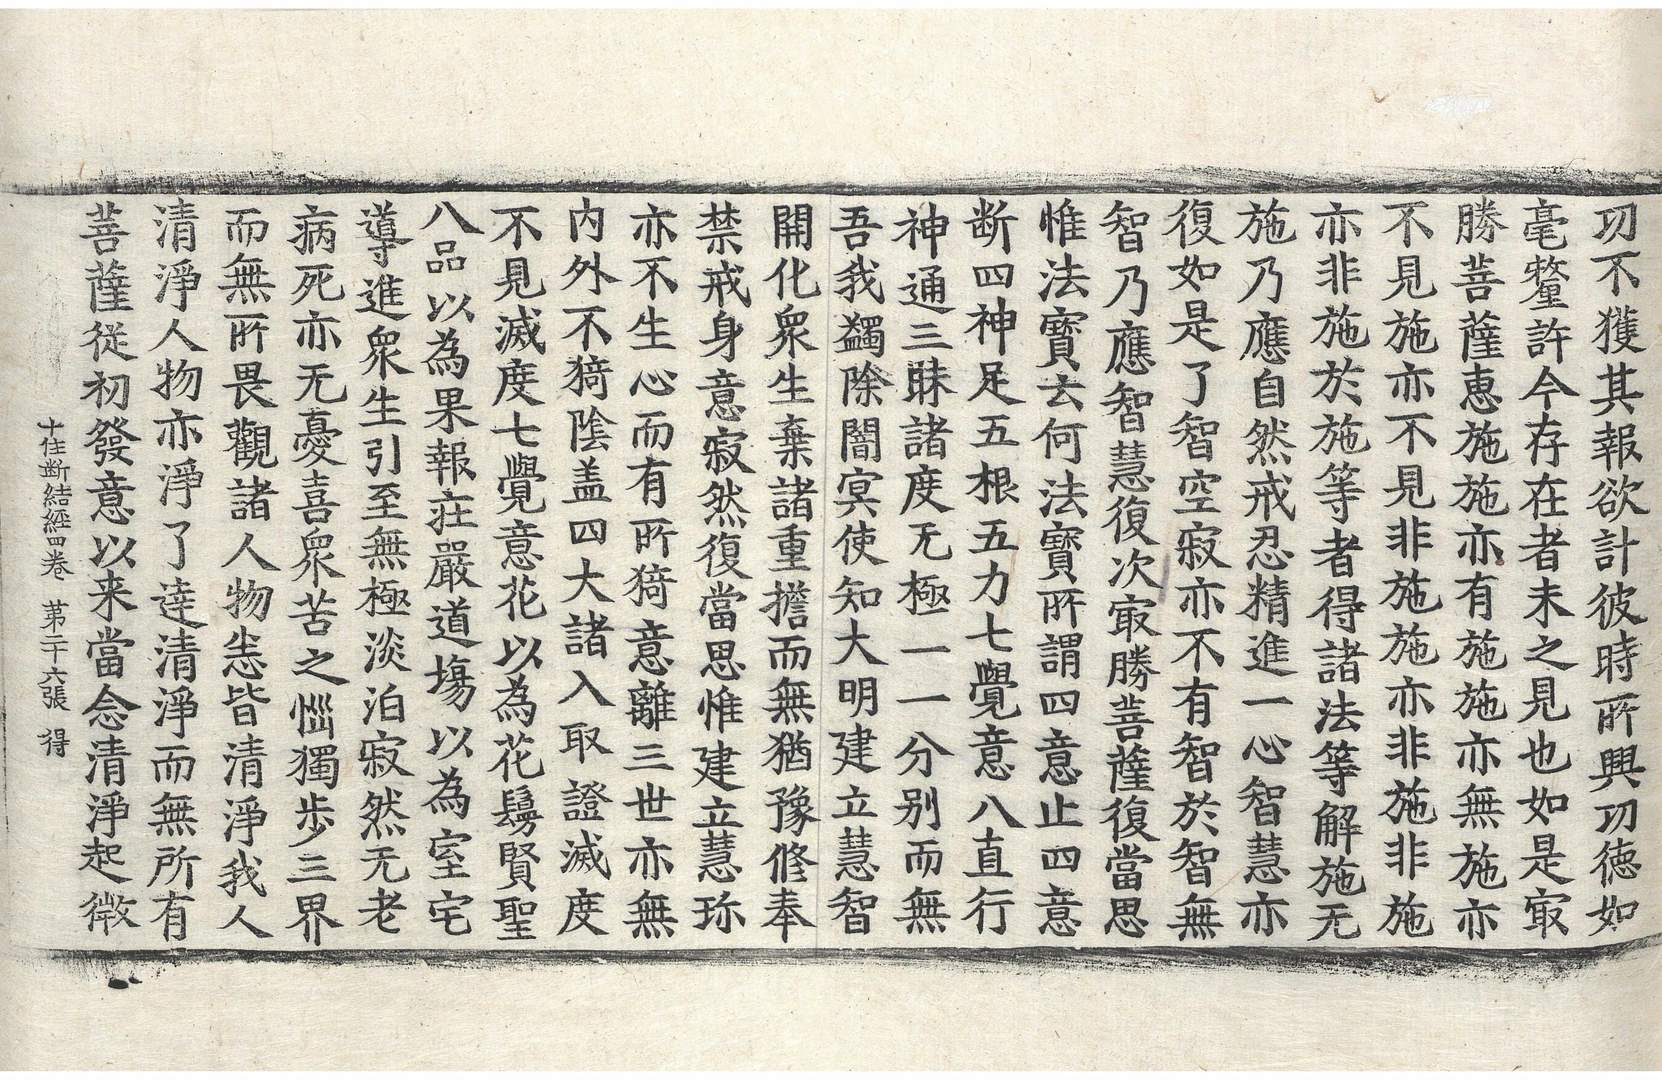 功不獲其報欲計彼時所興功德如
毫氂許今存在者未之見也如是㝡
勝菩薩惠施施亦有施施亦無施亦
不見施亦不見非施施亦非施非施
亦非施於施等者得諸法等解施无
施乃應自然戒忍精進一心智慧亦
復如是了智空寂亦不有智於智無
智乃應智慧復次㝡勝菩薩復當思
惟法寶云何法寶所謂四意止四意
断四神足五根五力七覺意八直行
神通三昧諸度无極一一分別而無
吾我蠲除闇㝠使知大明建立慧智
開化衆生棄諸重擔而無猶豫修奉
禁戒身意寂然復當思惟建立慧珎
亦不生心而有所猗意離三世亦無
内外不猗陰盖四大諸入取證滅度
不見滅度七覺意花以為花鬘賢聖
八品以為果報莊嚴道塲以為室宅
導進衆生引至無極淡泊寂然无老
病死亦无憂喜衆苦之惱獨步三界
而無所畏觀諸人物恚皆清淨我人
清淨人物亦淨了達清淨而無所有
菩薩從初發意以来當念清淨起㣲
十住断結經四卷　第二十六張　得